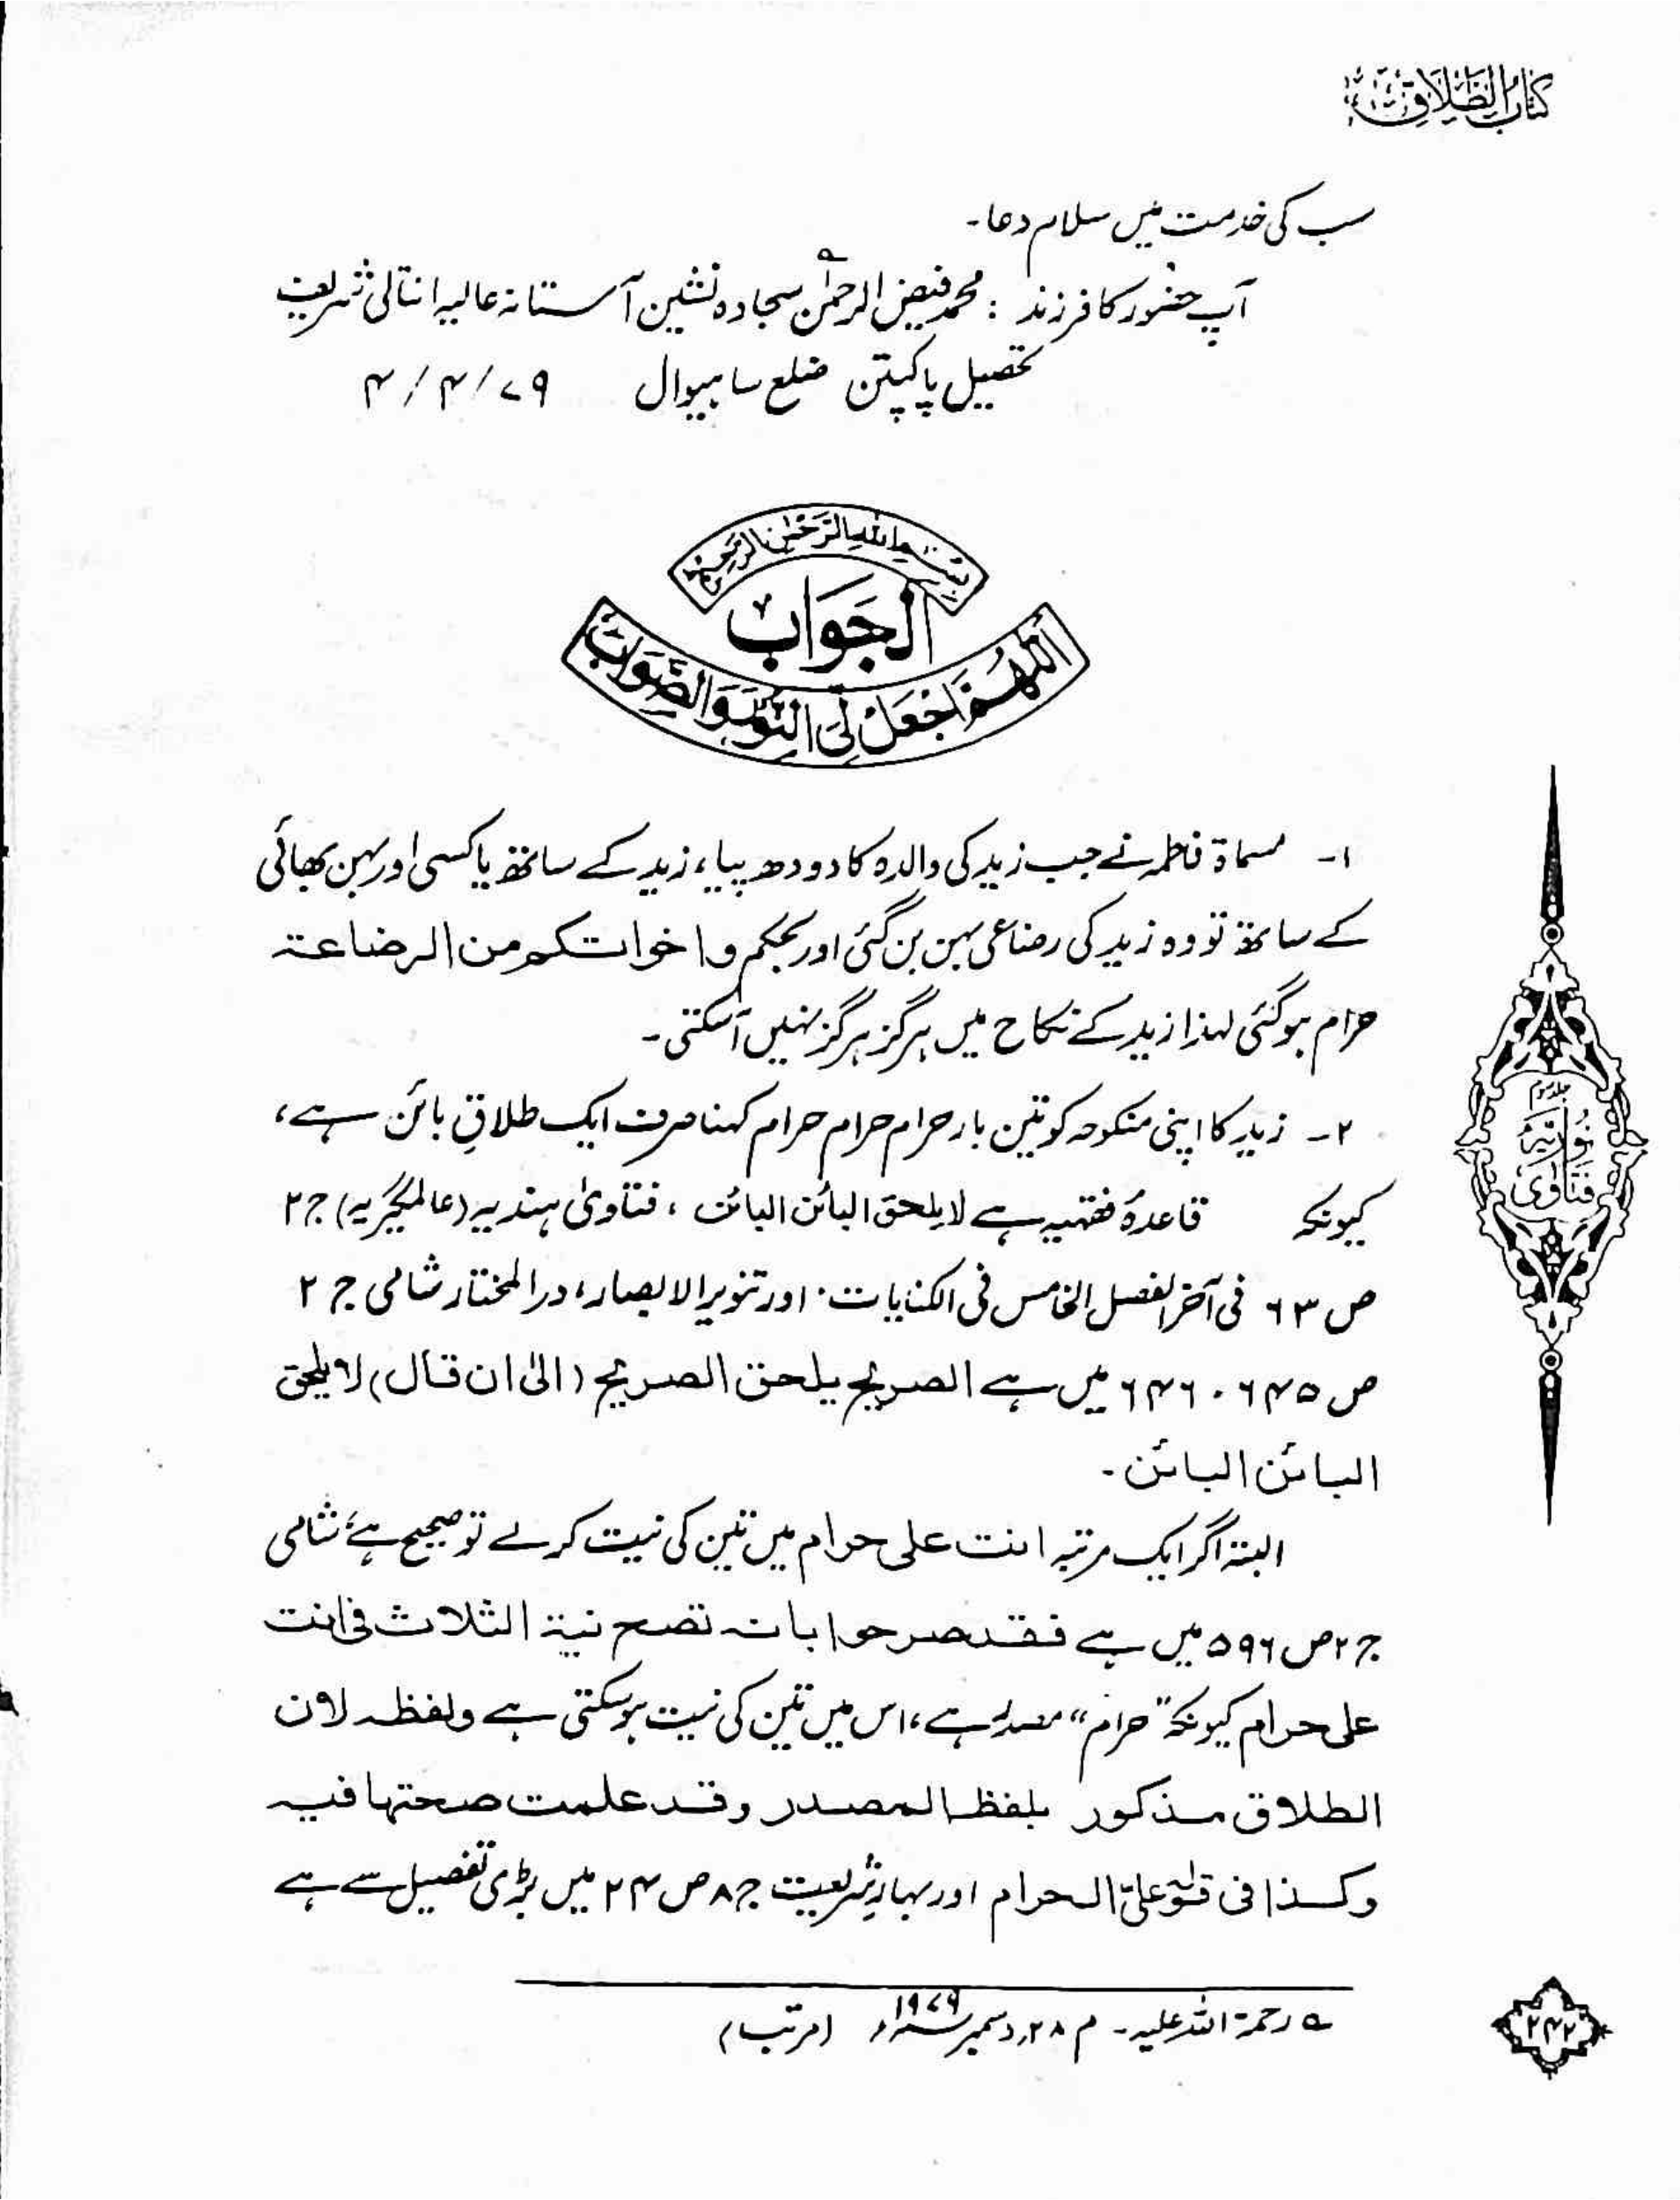 کتاب الطلاق
سب کی خدمت میں سلام دعا۔
آپ حضور کا فرزند : محمد فیض الرحمٰن سجادہ نشین آستانہ عالیہ انتالی شریف
تحصیل پاکپتن ضلع ساہیوال ۴/۴/۷۹
بسم اللہ الرحمٰن الرحیم
الجواب
اللھم اجعل لی النور والصواب
۱۔ مسماۃ فاطمہ نے جب زید کی والدہ کا دودھ پیا، زید کے ساتھ یا کسی اور بہن بھائی
کے ساتھ تو وہ زید کی رضاعی بہن بن گئی اور بحکم واخواتکم من الرضاعۃ
حرام ہوگئی لہذا زید کے نکاح میں ہرگز ہرگز نہیں آسکتی۔
۲۔ زید کا اپنی منکوحہ کو تین بار حرام حرام حرام کہنا صرف ایک طلاقِ بائن ہے،
کیونکہ قاعدۂ فقہیہ ہے لا یلحق البائن البائن ، فتاویٰ ہندیہ (عالمگیریہ) ج ۲
ص ۶۳ فی آخر الفصل الخامس فی الکنایات ۔ اور تنویر الابصار، در المختار شامی ج ۲
ص ۶۴۵ ۔ ۶۴۶ میں ہے الصریح یلحق الصریح (الیٰ ان قال) لا یلحق
البائن البائن ۔
البتہ اگر ایک مرتبہ انت علی حرام میں تین کی نیت کرلے تو صحیح ہے، شامی
ج ۲ ص ۵۹۶ میں ہے فقد صرحوا بانہ تصح نیۃ الثلاث فی انت
علی حرام کیونکہ "حرام" مصدر ہے، اس میں تین کی نیت ہوسکتی ہے ولفظہ لان
الطلاق مذکور بلفظ المصدر وقد علمت صحتہا فیہ
وکذا فی قولہ علیّ الحرام اور بہارِ شریعت ج ۸ ص ۲۴ میں بڑی تفصیل سے ہے
؎ رحمۃ اللہ علیہ۔ م ۲۸؍ دسمبر ۱۹۷۹ء (مرتب)
فتاویٰ نوریہ
۲۴۲